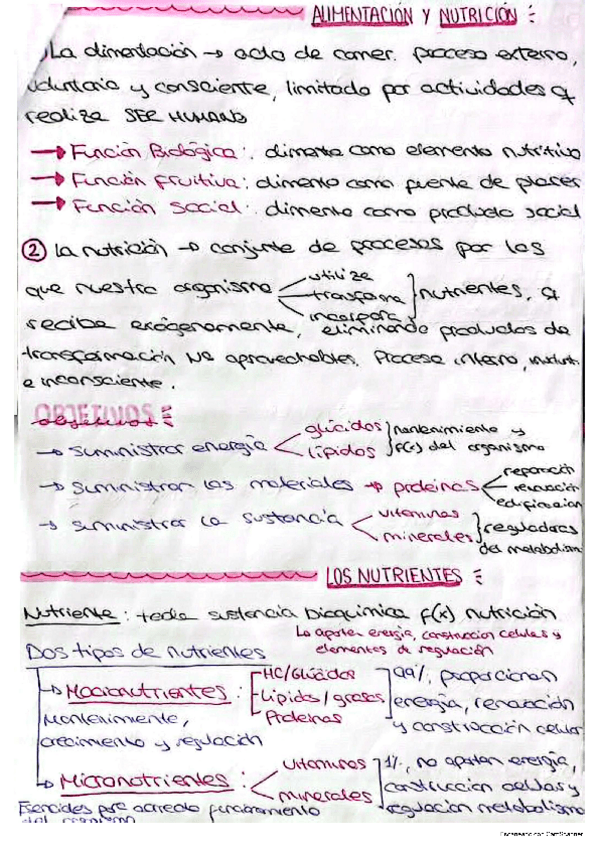 ALIMENTACIÓN Y NUTRICIÓN
La alimentación → acto de comer. proceso externo,
voluntario y consciente, limitado por actividades q
realiza SER HUMANO
→ Función Biológica: alimento como elemento nutritivo
→ Función Fruitiva: alimento como fuente de placer
→ Función Social: alimento como producto social
② La nutrición → conjunto de procesos por los
que nuestro organismo utiliza transforma incorpora nutrientes, q
recibe exógenamente, eliminando productos de
transformación No aprovechables. Proceso interno, involunt.
e inconsciente.
OBJETIVOS
objetivos
→ suministrar energía glúcidos lípidos mantenimiento y f(x) del organismo
→ suministran los materiales → proteínas reparación renovación edificación
→ suministrar la sustancia vitaminas minerales reguladoras del metabolismo
LOS NUTRIENTES
Nutriente: toda sustancia bioquímica f(x) nutrición
Lo aportan energía, construccion celular y
elementos de regulación
Dos tipos de nutrientes
↳ Macronutrientes: HC/Glúcidos Lípidos/grasas Proteínas 99%, proporcionan energía, renovación y construcción celular
Mantenimiento,
crecimiento y regulación
↳ Micronutrientes: vitaminas minerales 1%, no aportan energía, construccion celular y regulación metabolismo
Esenciales para funcionamiento
del organismo
Escaneado con CamScanner